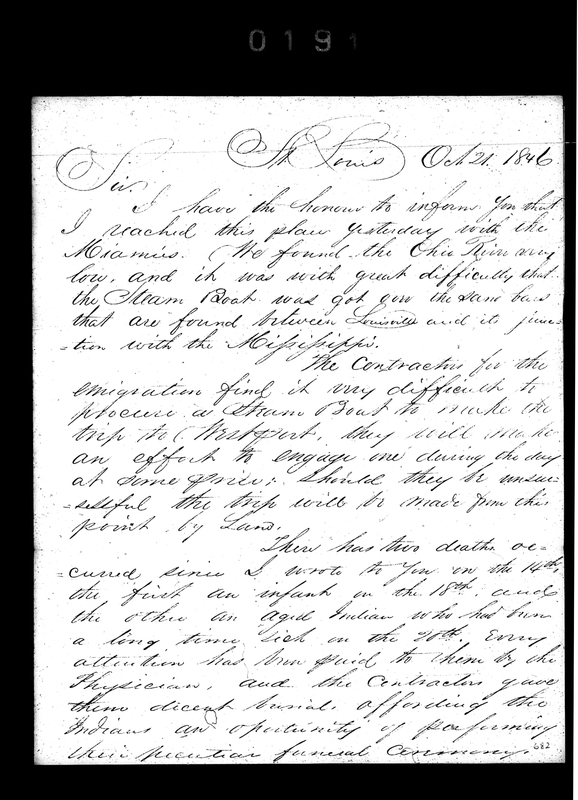 0191
St Louis Oct 21. 1846
Sir.
I have the honour to inform you that
I reached this place yesterday with the
Miamies. We found the Ohio River very
low, and it was with great difficulty that
the Steam Boat was got over the sand bars
that are found between Louisville and its junc-
=tion with the Mississippi.
The Contractors for the
emigration find it very difficult to
procure a Steam Boat to make the
trip to Westport, they will make
an effort to engage one during the day
at some price; should they be unsuc-
=sessful the trip will be made from this
point by Land.
There has two deaths oc-
=cured since I wrote to you on the 14th,
the first an infant on the 18th, and
the other an aged Indian who has been
a long time sick on the 20th. Every
attention has been paid to them by the
Physician, and the contractors gave
them decent burial affording the
Indians an oportunity of performing
their peculiar funeral ceremony.
682